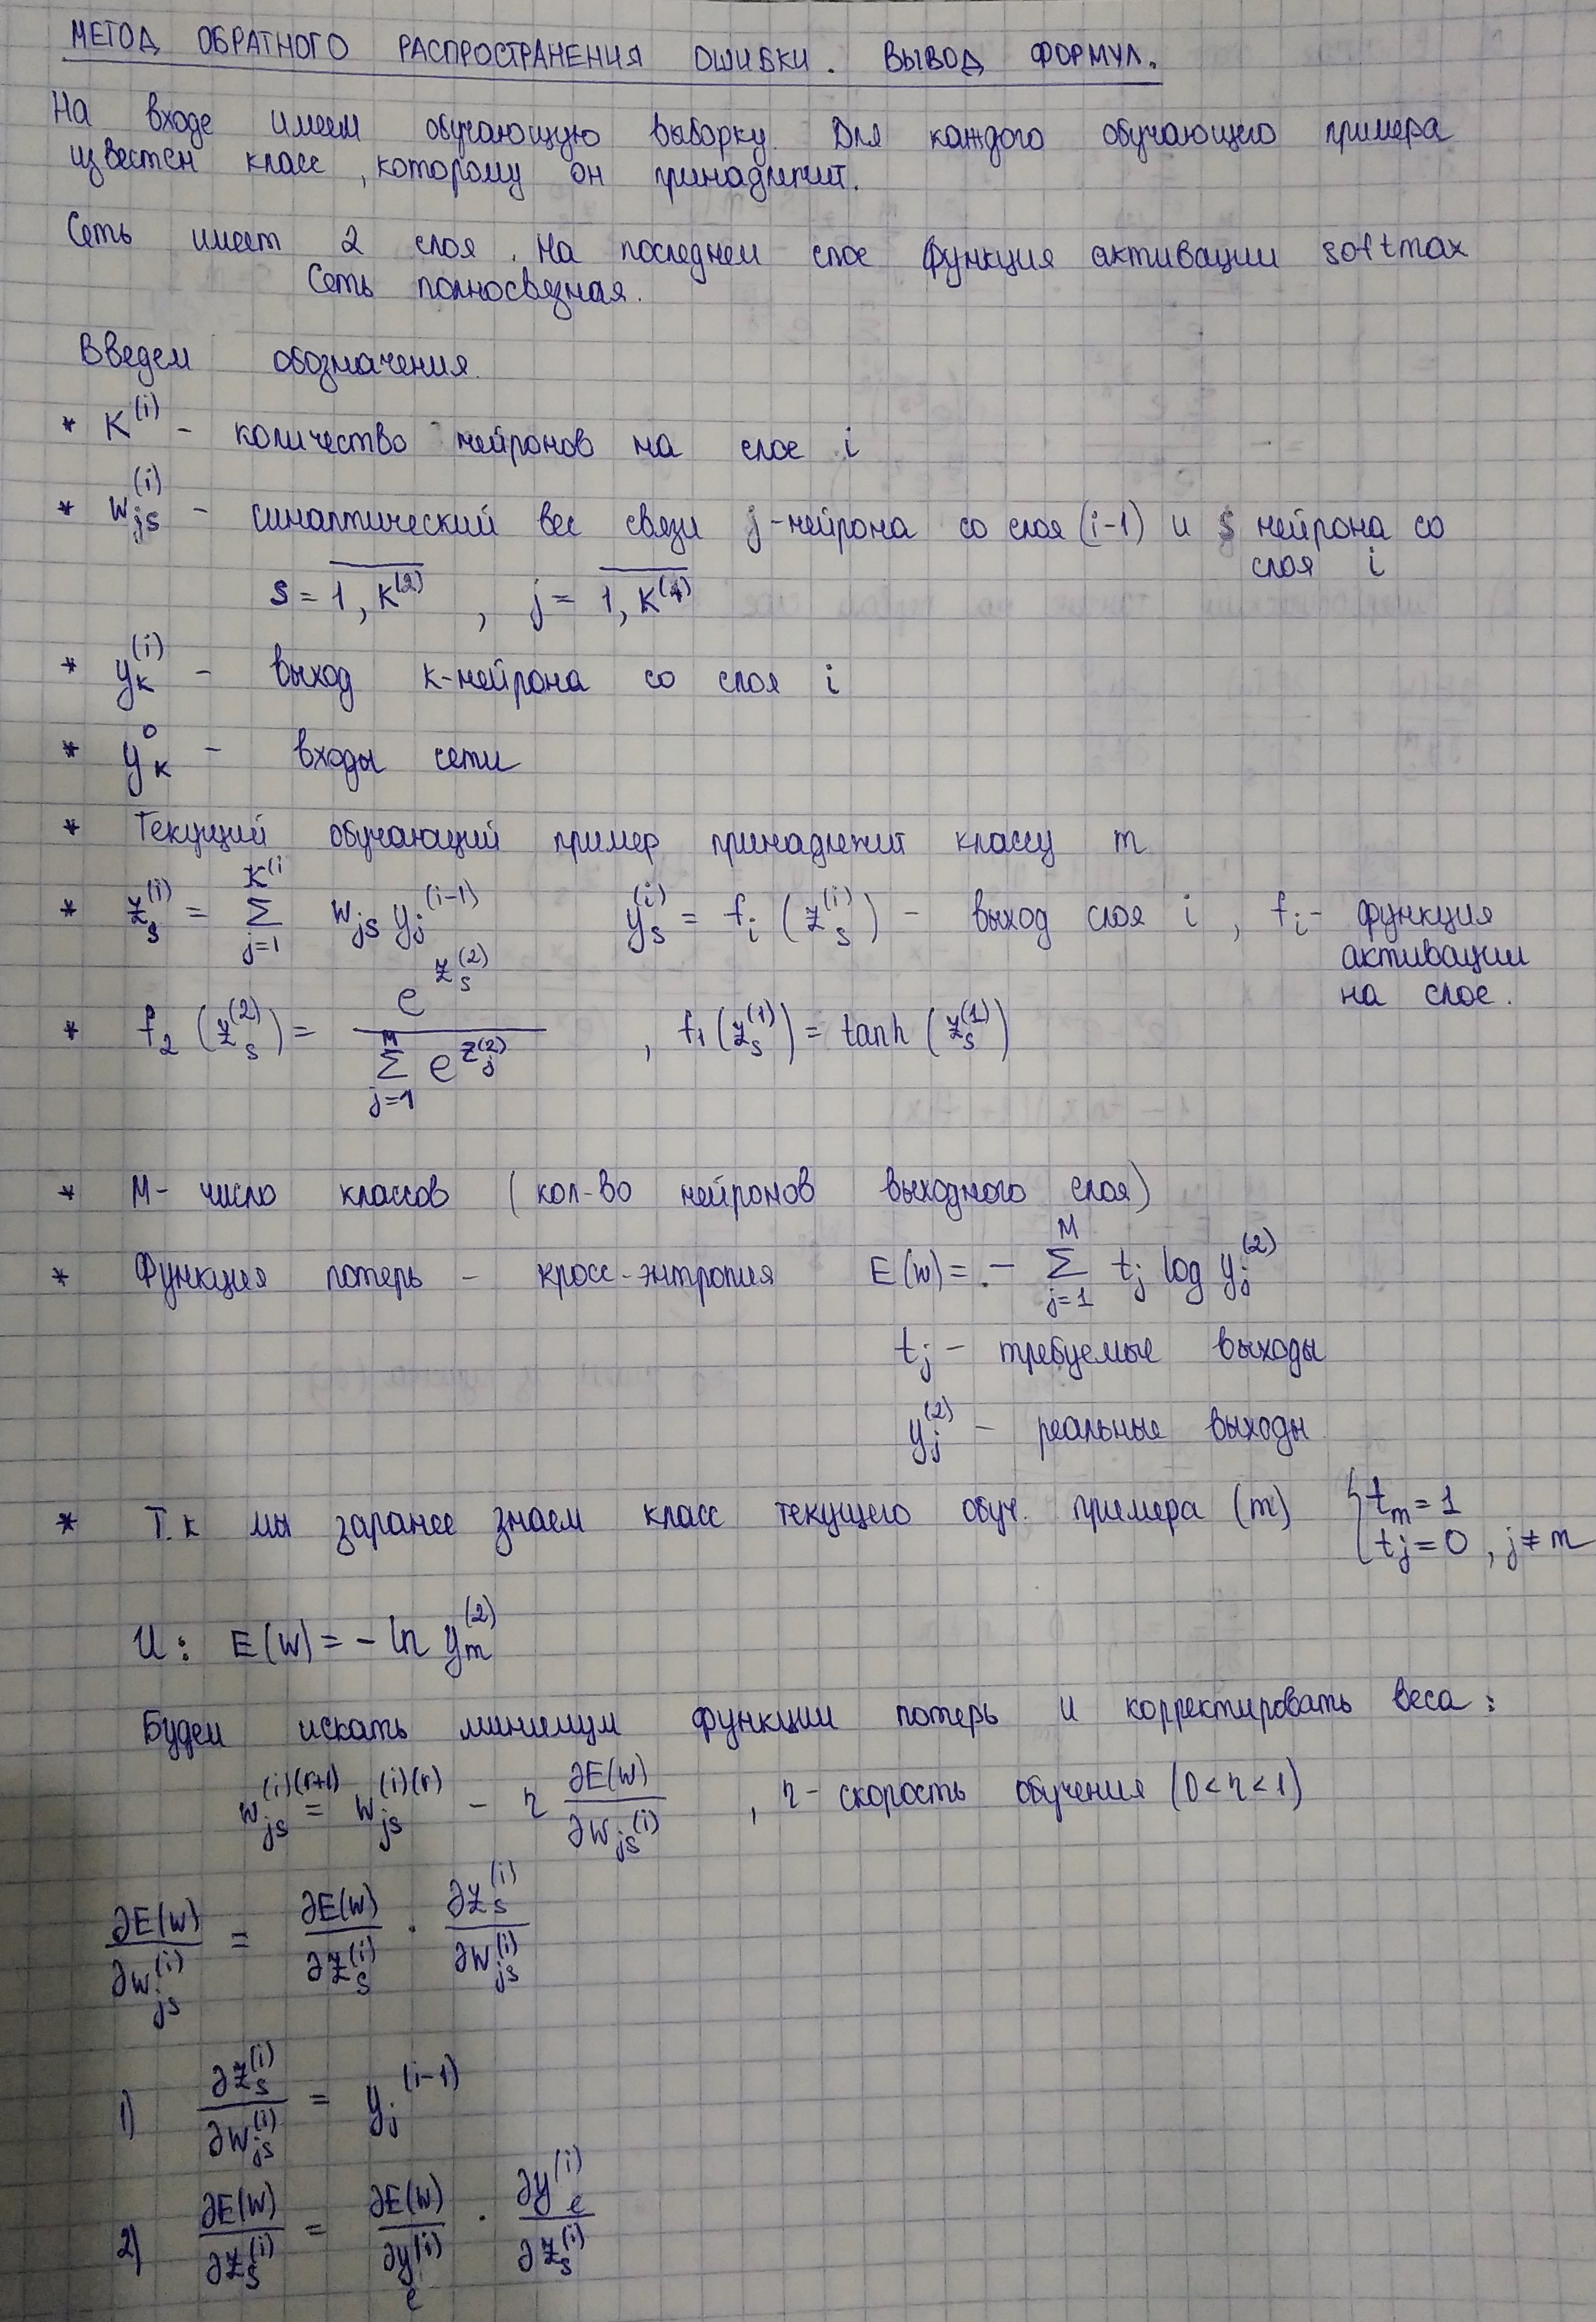 МЕТОД ОБРАТНОГО РАСПРОСТРАНЕНИЯ ОШИБКИ. ВЫВОД ФОРМУЛ.
На входе имеем обучающую выборку. Для каждого обучающего примера
известен класс, которому он принадлежит.
Сеть имеет 2 слоя. На последнем слое функция активации softmax
Сеть полносвязная.
Введем обозначения.
* K^(i) - количество нейронов на слое i
* w_js^(i) - синаптический вес связи j-нейрона со слоя (i-1) и s нейрона со
слоя i
s = 1, K^(2) , j = 1, K^(1)
* y_k^(i) - выход k-нейрона со слоя i
* y_k^0 - входы сети
* Текущий обучающий пример принадлежит классу m
* z_s^(i) = Σ_{j=1}^{K^(i} w_js y_j^(i-1) y_s^(i) = f_i (z_s^(i)) - выход слоя i , f_i - функция
активации
на слое.
* f_2 (z_s^(2)) = e^{z_s^(2)} / Σ_{j=1}^{M} e^{z_j^(2)} , f_1 (z_s^(1)) = tanh (z_s^(1))
* M - число классов (кол-во нейронов выходного слоя)
* Функция потерь - кросс-энтропия E(w) = - Σ_{j=1}^{M} t_j log y_j^(2)
t_j - требуемые выходы
y_j^(2) - реальные выходы
* Т.к мы заранее знаем класс текущего обуч. примера (m) { t_m = 1
t_j = 0 , j ≠ m
И: E(w) = - ln y_m^(2)
Будем искать минимум функции потерь и корректировать веса:
w_js^(i)(r+1) = w_js^(i)(r) - η ∂E(w)/∂w_js^(i) , η - скорость обучения (0 < η < 1)
∂E(w)/∂w_js^(i) = ∂E(w)/∂z_s^(i) · ∂z_s^(i)/∂w_js^(i)
1) ∂z_s^(i)/∂w_js^(i) = y_j^(i-1)
2) ∂E(w)/∂z_s^(i) = ∂E(w)/∂y_e^(i) · ∂y_e^(i)/∂z_s^(i)